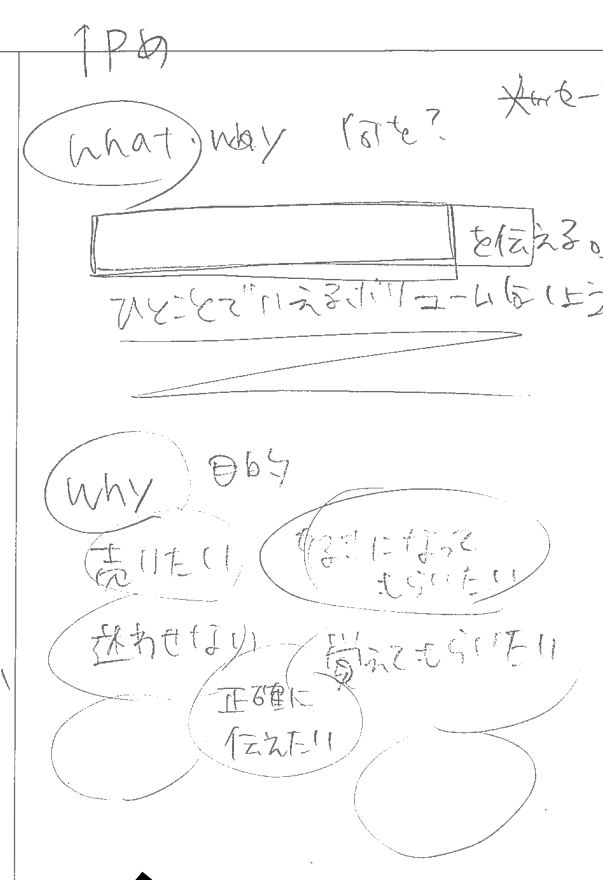 ↑Pめ
what・why 何を?
を伝える。
ひとことでいえるボリュームに
why 目的
売りたい
好きになって
もらいたい
迷わせない
覚えてもらいたい
正確に
伝えたい